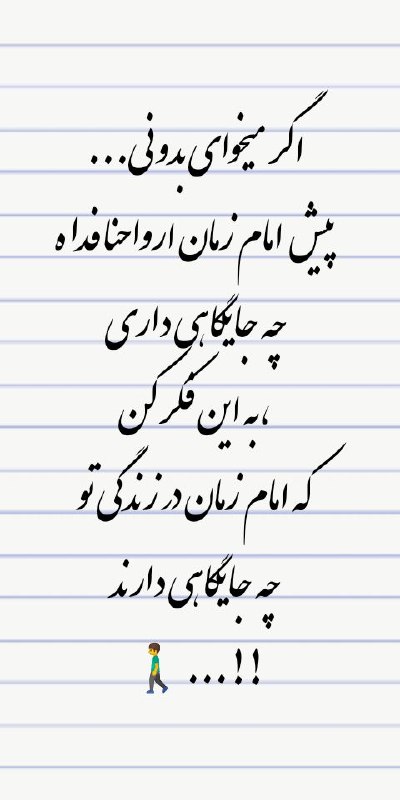 اگر میخوای بدونی...
پیش امام زمان ارواحنافداه
چه جایگاهی داری
،به این فکر کن
که امام زمان در زندگی تو
چه جایگاهی دارند
!!... 🚶‍♂️